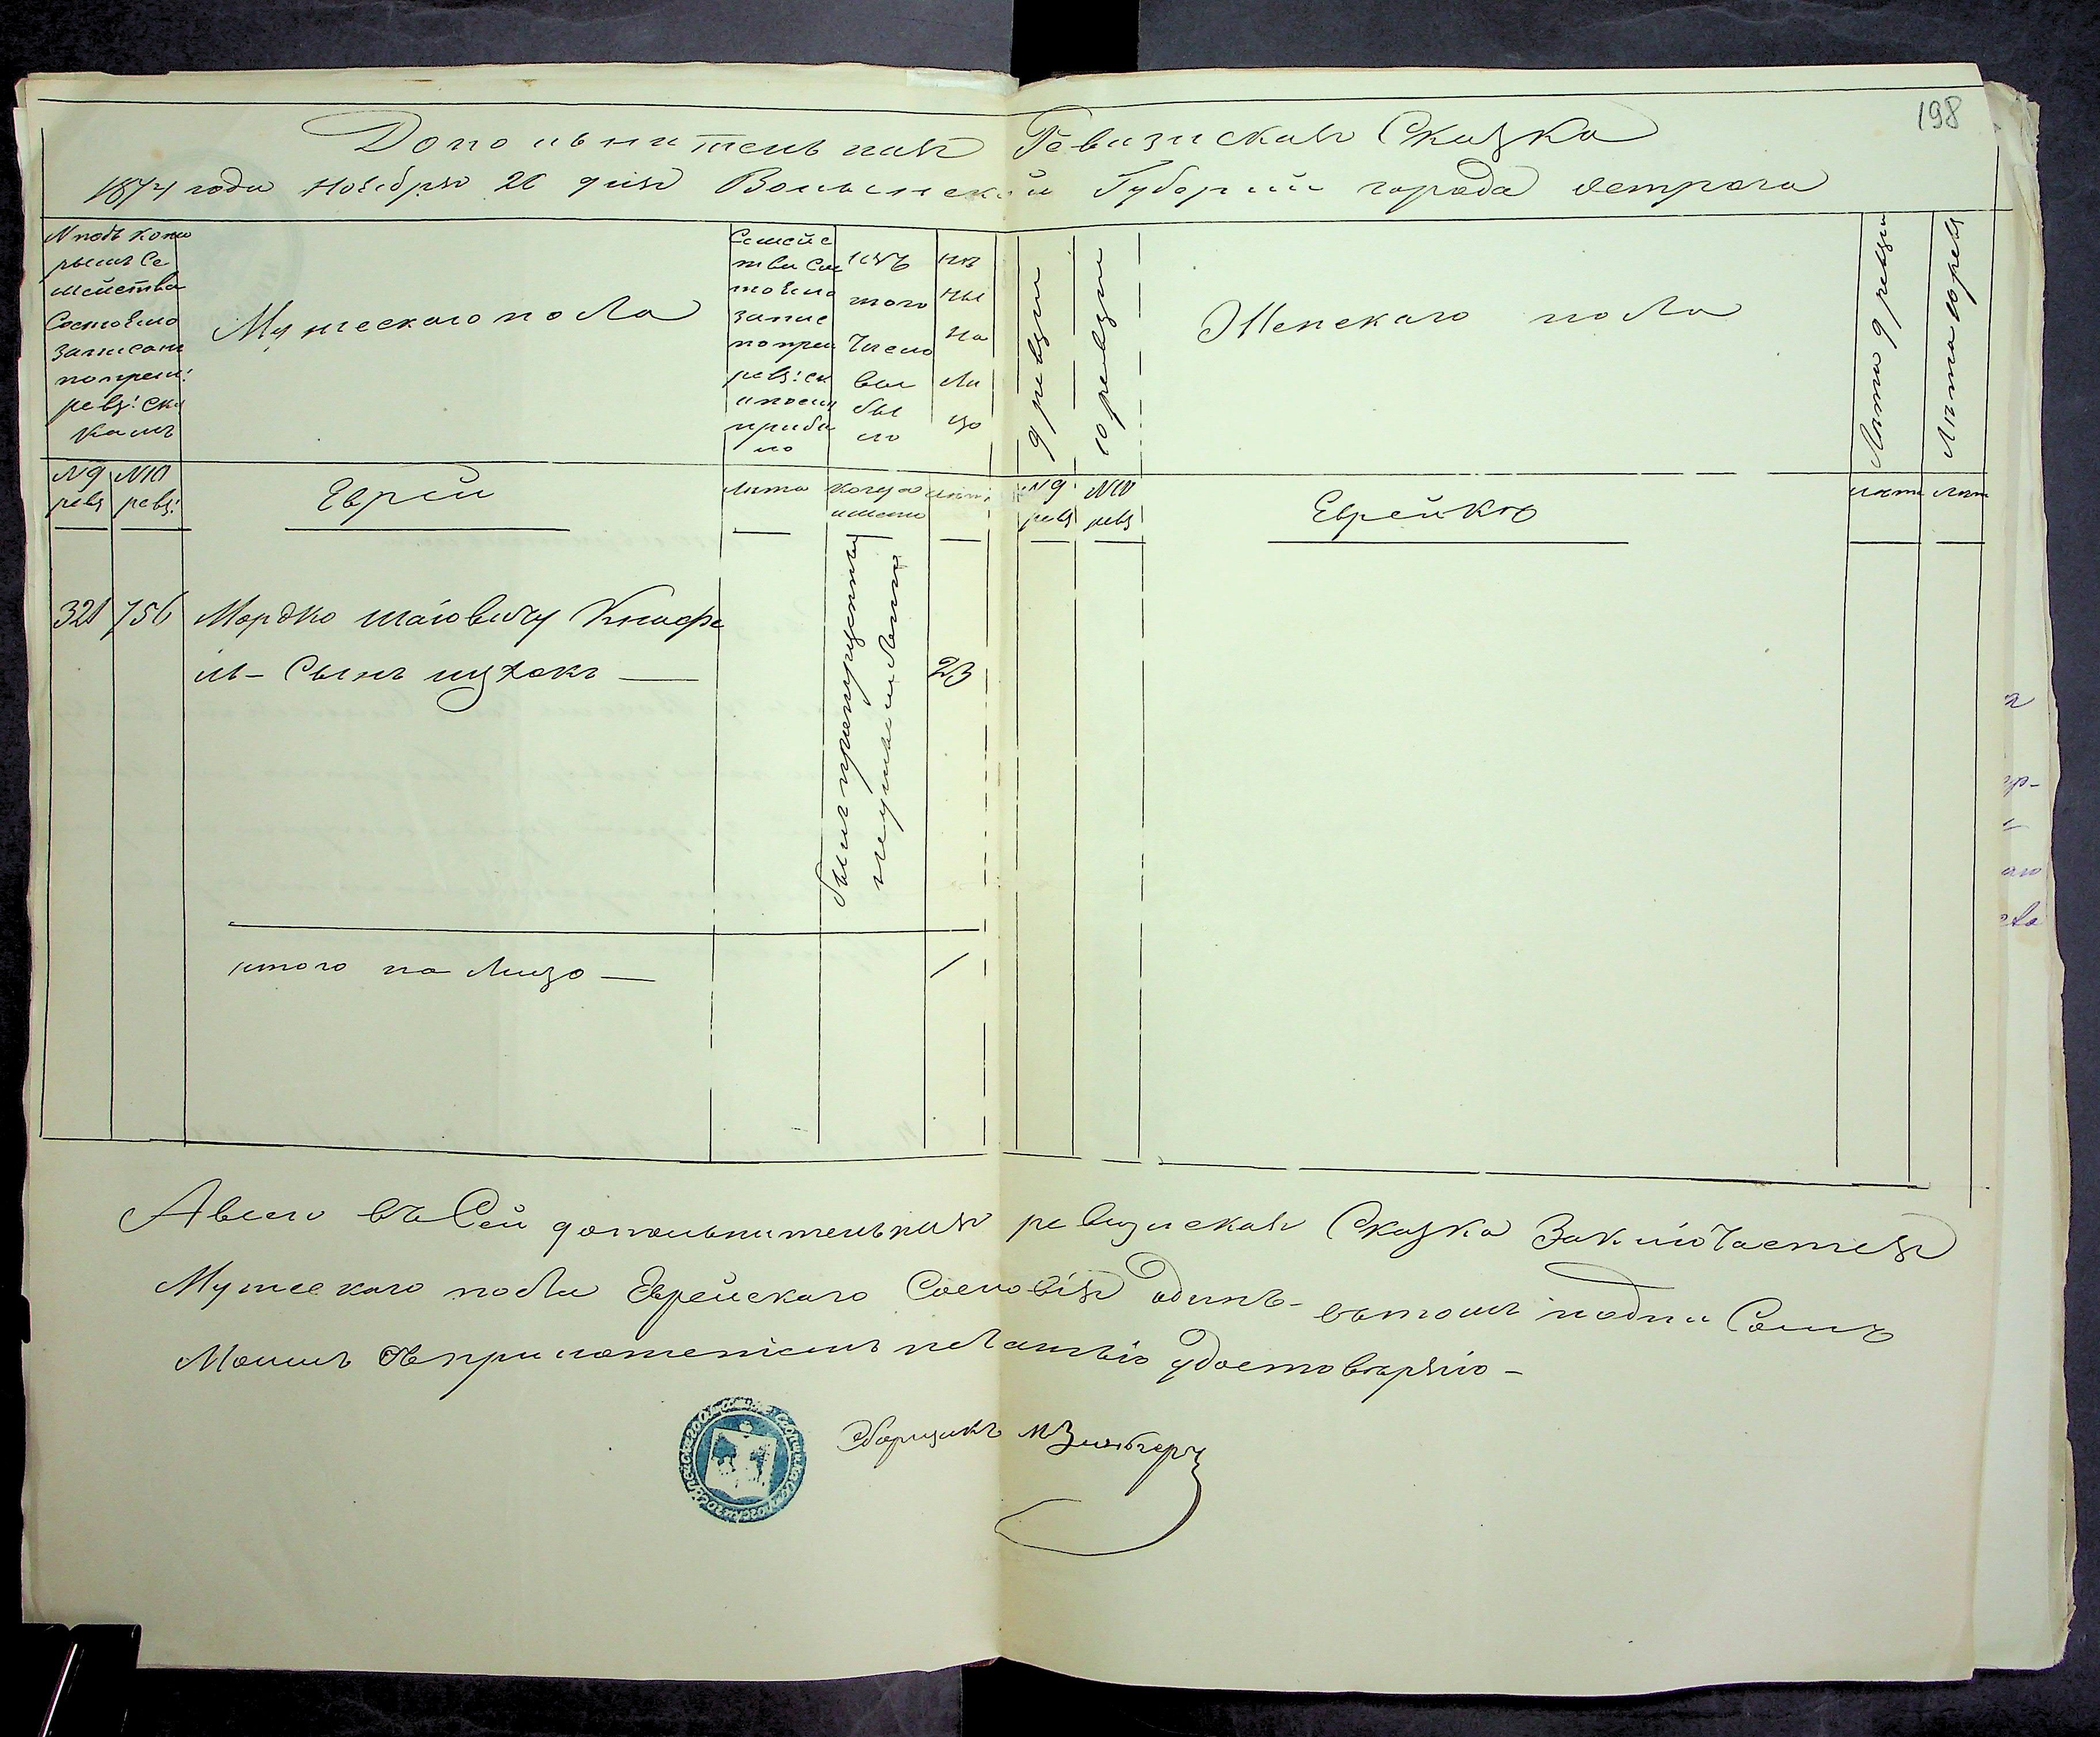 198
Дополнительная Ревизиская Сказка
1874 года Ноября 26 дня Волынской Губернии города Острога
№ подъ кото
рымъ Се
мейства
Состояло
записан
по преж:
ревз: ска
камъ
Мужескаго пола
Семейс
тва сос
тояло
запис
по преж
ревз: ск
и после
прибы
ло
изъ
того
Число
вы
бы
ло
ны
на
ли
цо
9 ревзи
10 ревзи
Женскаго пола
Лета 9 ревзи
Лета 10 ревз
№9 ревз
№10 ревз:
Евреи
лета
когда именно
лет
№9 ревз
№10 ревз
Еврейки
лет
лет
321 756 Мордко Шаіовичу Кнафе
ль - Сынъ ицхокъ — 23
былъ пропущенны
итого на лицо — 1
А всего въ Сей дополнительная ревизиская Сказка Заключается
Мужескаго пола Еврейскаго Сословія одинъ - въ томъ подпи Сомъ
Моимъ съ приложеніемъ печатью удостоверяю -
Сборщикъ М